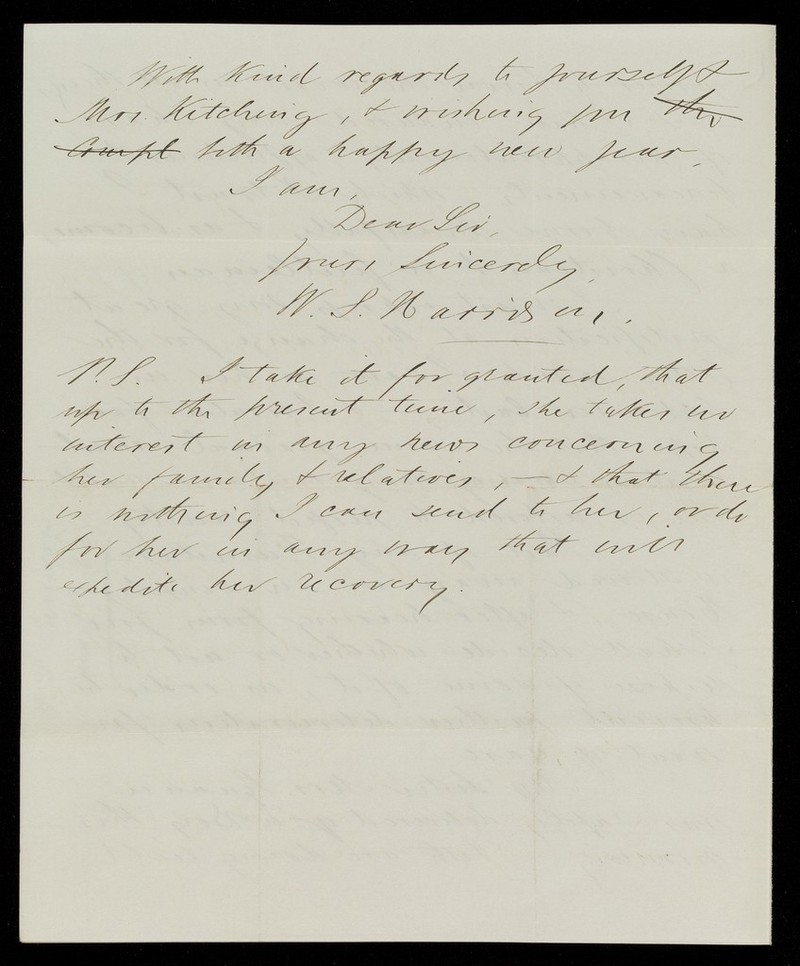 With kind regards to yourself &
Mrs. Kitching, & wishing you the
Compl both a happy new year,
I am,
Dear Sir,
yours Sincerely,
W. S. Harrison.
P.S. I take it for granted, that
up to the present time, she takes no
interest in any news concerning
her family & relatives, — & that there
is nothing I can send to her, or do
for her in any way that will
expedite her recovery.